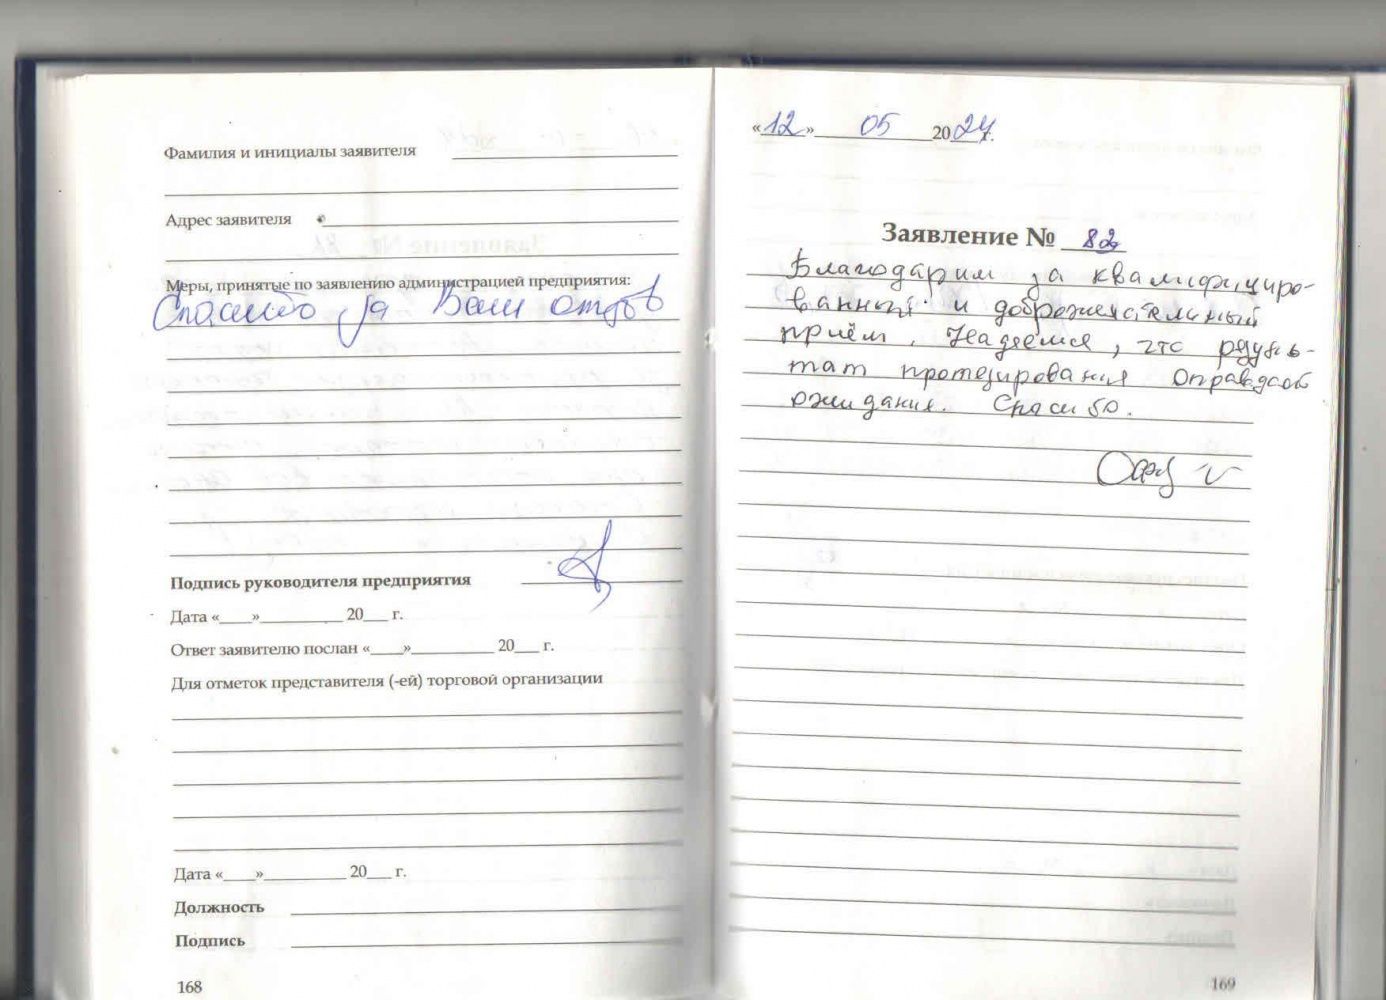 Фамилия и инициалы заявителя
Адрес заявителя
Меры, принятые по заявлению администрацией предприятия:
Спасибо за Ваш отзыв
Подпись руководителя предприятия
Дата «____»__________ 20___ г.
Ответ заявителю послан «____»__________ 20___ г.
Для отметок представителя (-ей) торговой организации
Дата «____»__________ 20___ г.
Должность
Подпись
168
«12» 05 2024 г.
Заявление № 82
Благодарим за квалифициро-
ванный и доброжелательный
приём. Надеемся, что резуль-
тат протезирования оправдает
ожидания. Спасибо.
169